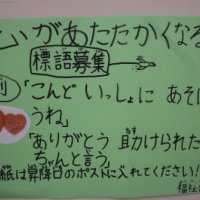 いがあたたかくなる
標語募集
例
「こんど いっしょに あそ
うね」
「ありがとう 助けられた
ちゃんと言う」
紙は昇降口のポストに入れてください!
福祉